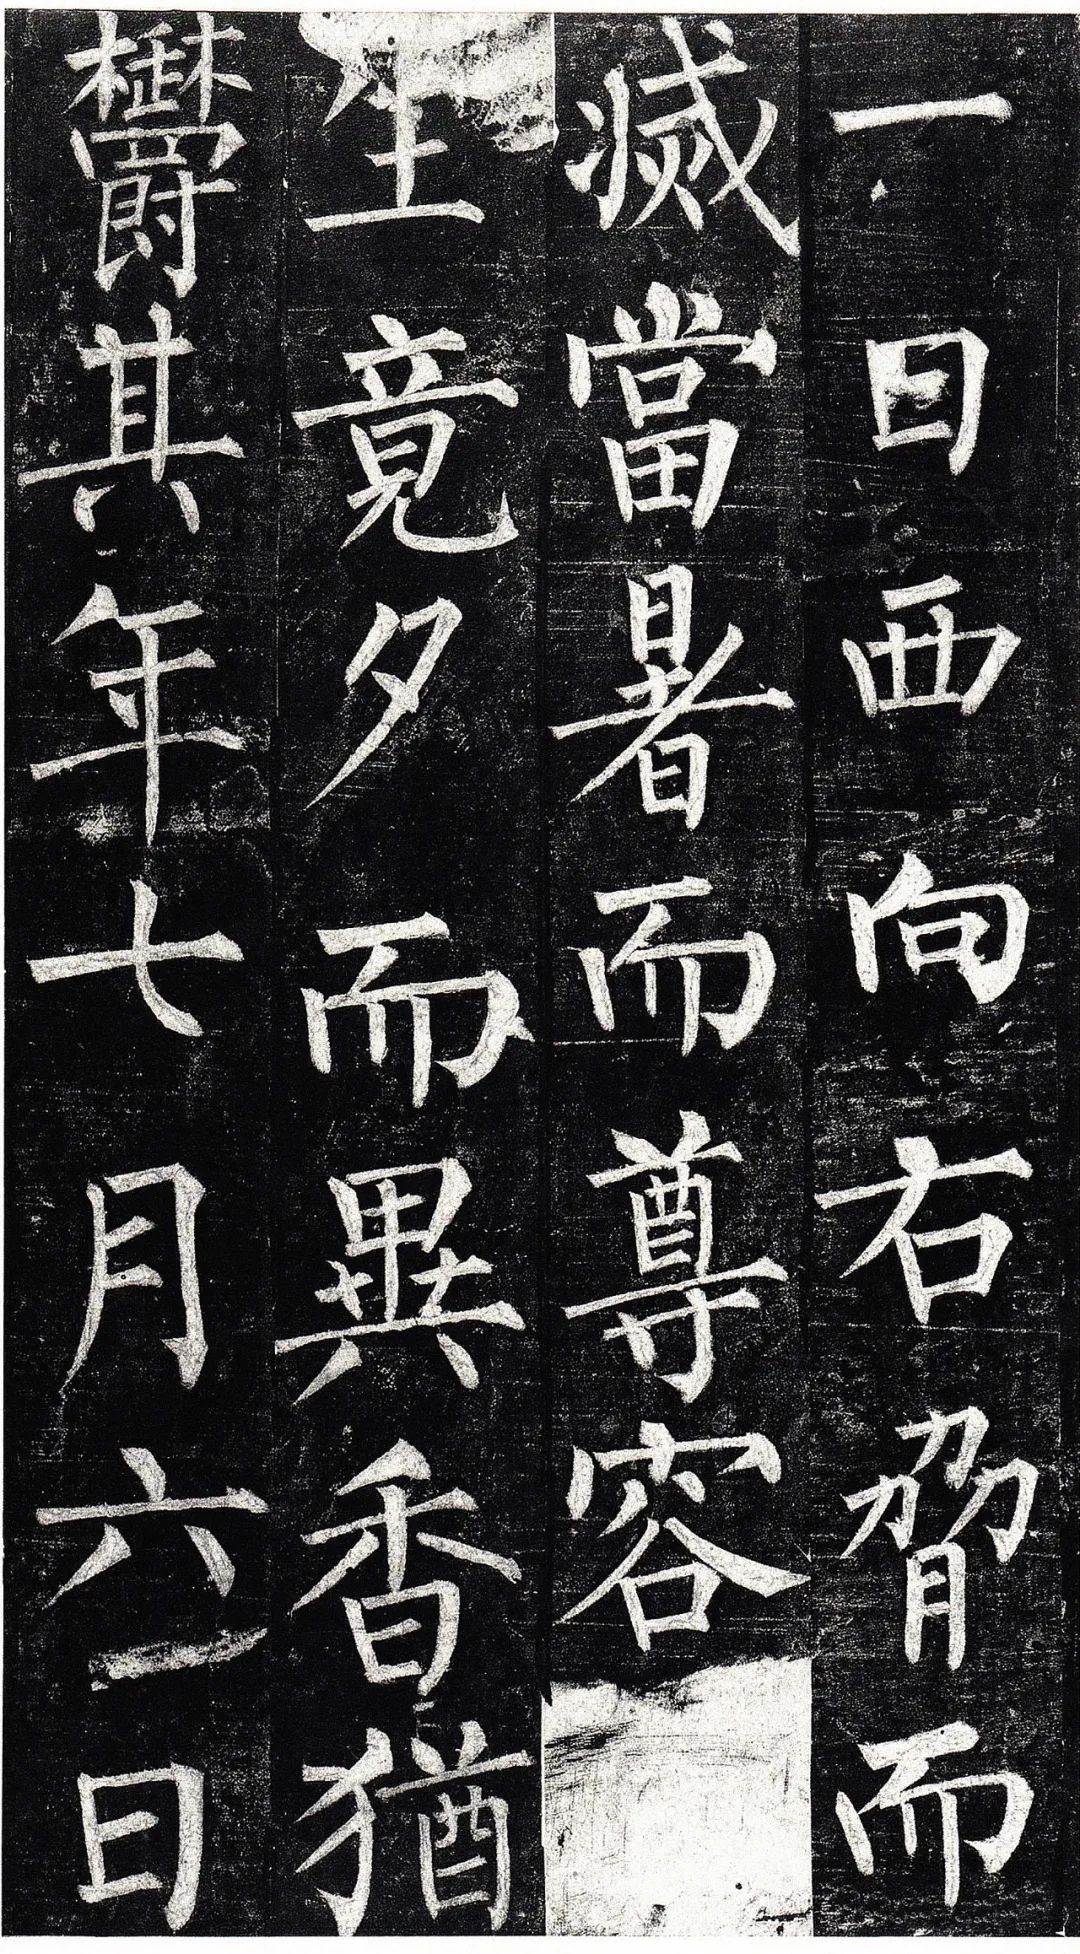 一日西向右脅而
滅當暑而尊容
生竟夕而異香猶
鬱其年七月六日